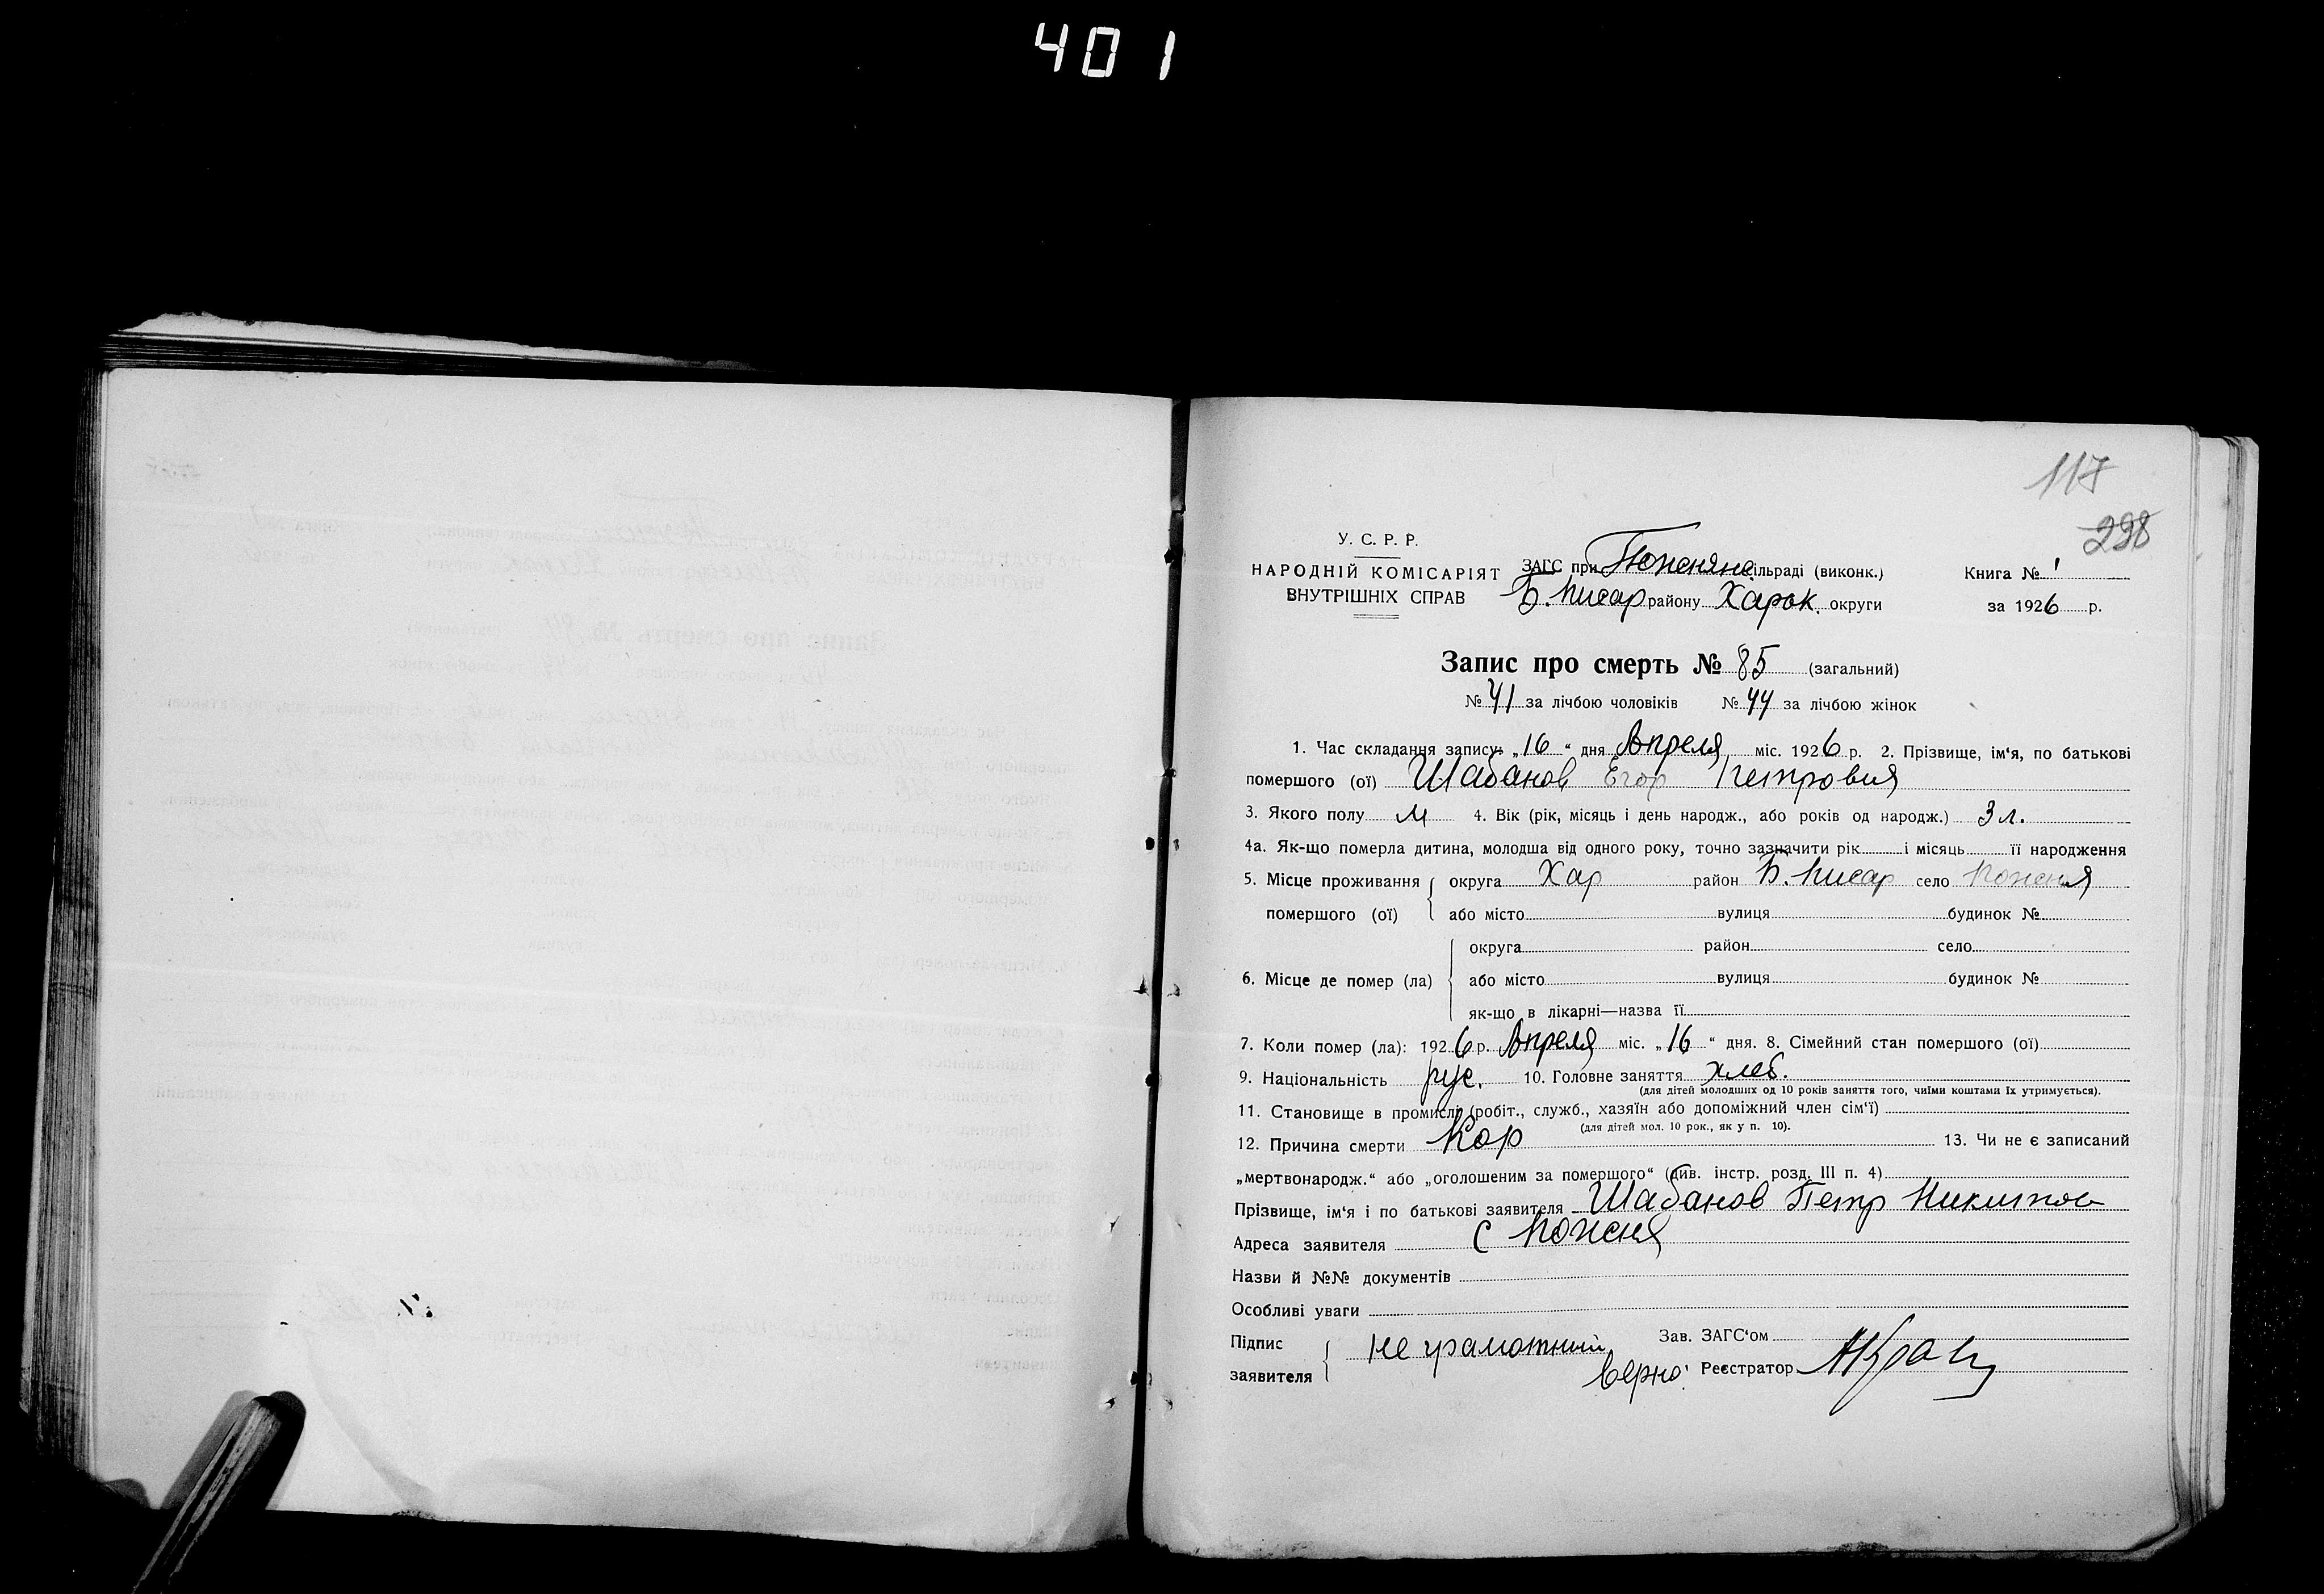 401
117
298
У. С. Р. Р.
НАРОДНІЙ КОМІСАРІЯТ
ВНУТРІШНІХ СПРАВ
ЗАГС при Пожнянс сільраді (виконк.)
Б. Писар району Харьк. округи
Книга № 1
за 1926 р.
Запис про смерть № 85 (загальний)
№ 41 за лічбою чоловіків № 44 за лічбою жінок
1. Час складання запису: „16“ дня Апреля міс. 1926 р. 2. Прізвище, ім'я, по батькові
помершого (ої) Шабанов Егор Петровия
3. Якого полу М 4. Вік (рік, місяць і день народж., або років од народж.) 3 л.
4а. Як-що померла дитина, молодша від одного року, точно зазначити рік і місяць її народження
5. Місце проживання помершого (ої) округа Хар район Б. Писар село Пожня
або місто вулиця будинок №
6. Місце де помер (ла) округа район село
або місто вулиця будинок №
як-що в лікарні—назва її
7. Коли помер (ла): 1926 р. Апреля міс. „16“ дня. 8. Сімейний стан помершого (ої)
9. Національність рус. 10. Головне заняття хлеб.
(для дітей молодших од 10 років заняття того, чиїми коштами їх утримується).
11. Становище в промислі (робіт., служб., хазяїн або допоміжний член сім'ї)
(для дітей мол. 10 рок., як у п. 10).
12. Причина смерти Кор 13. Чи не є записаний
„мертвонародж.“ або „оголошеним за помершого“ (див. інстр. розд. III п. 4)
Прізвище, ім'я і по батькові заявителя Шабанов Петр Никитов
Адреса заявителя с Пожня
Назви й №№ документів
Особливі уваги
Підпис заявителя не грамотний
Зав. ЗАГС'ом
Верно: Реєстратор